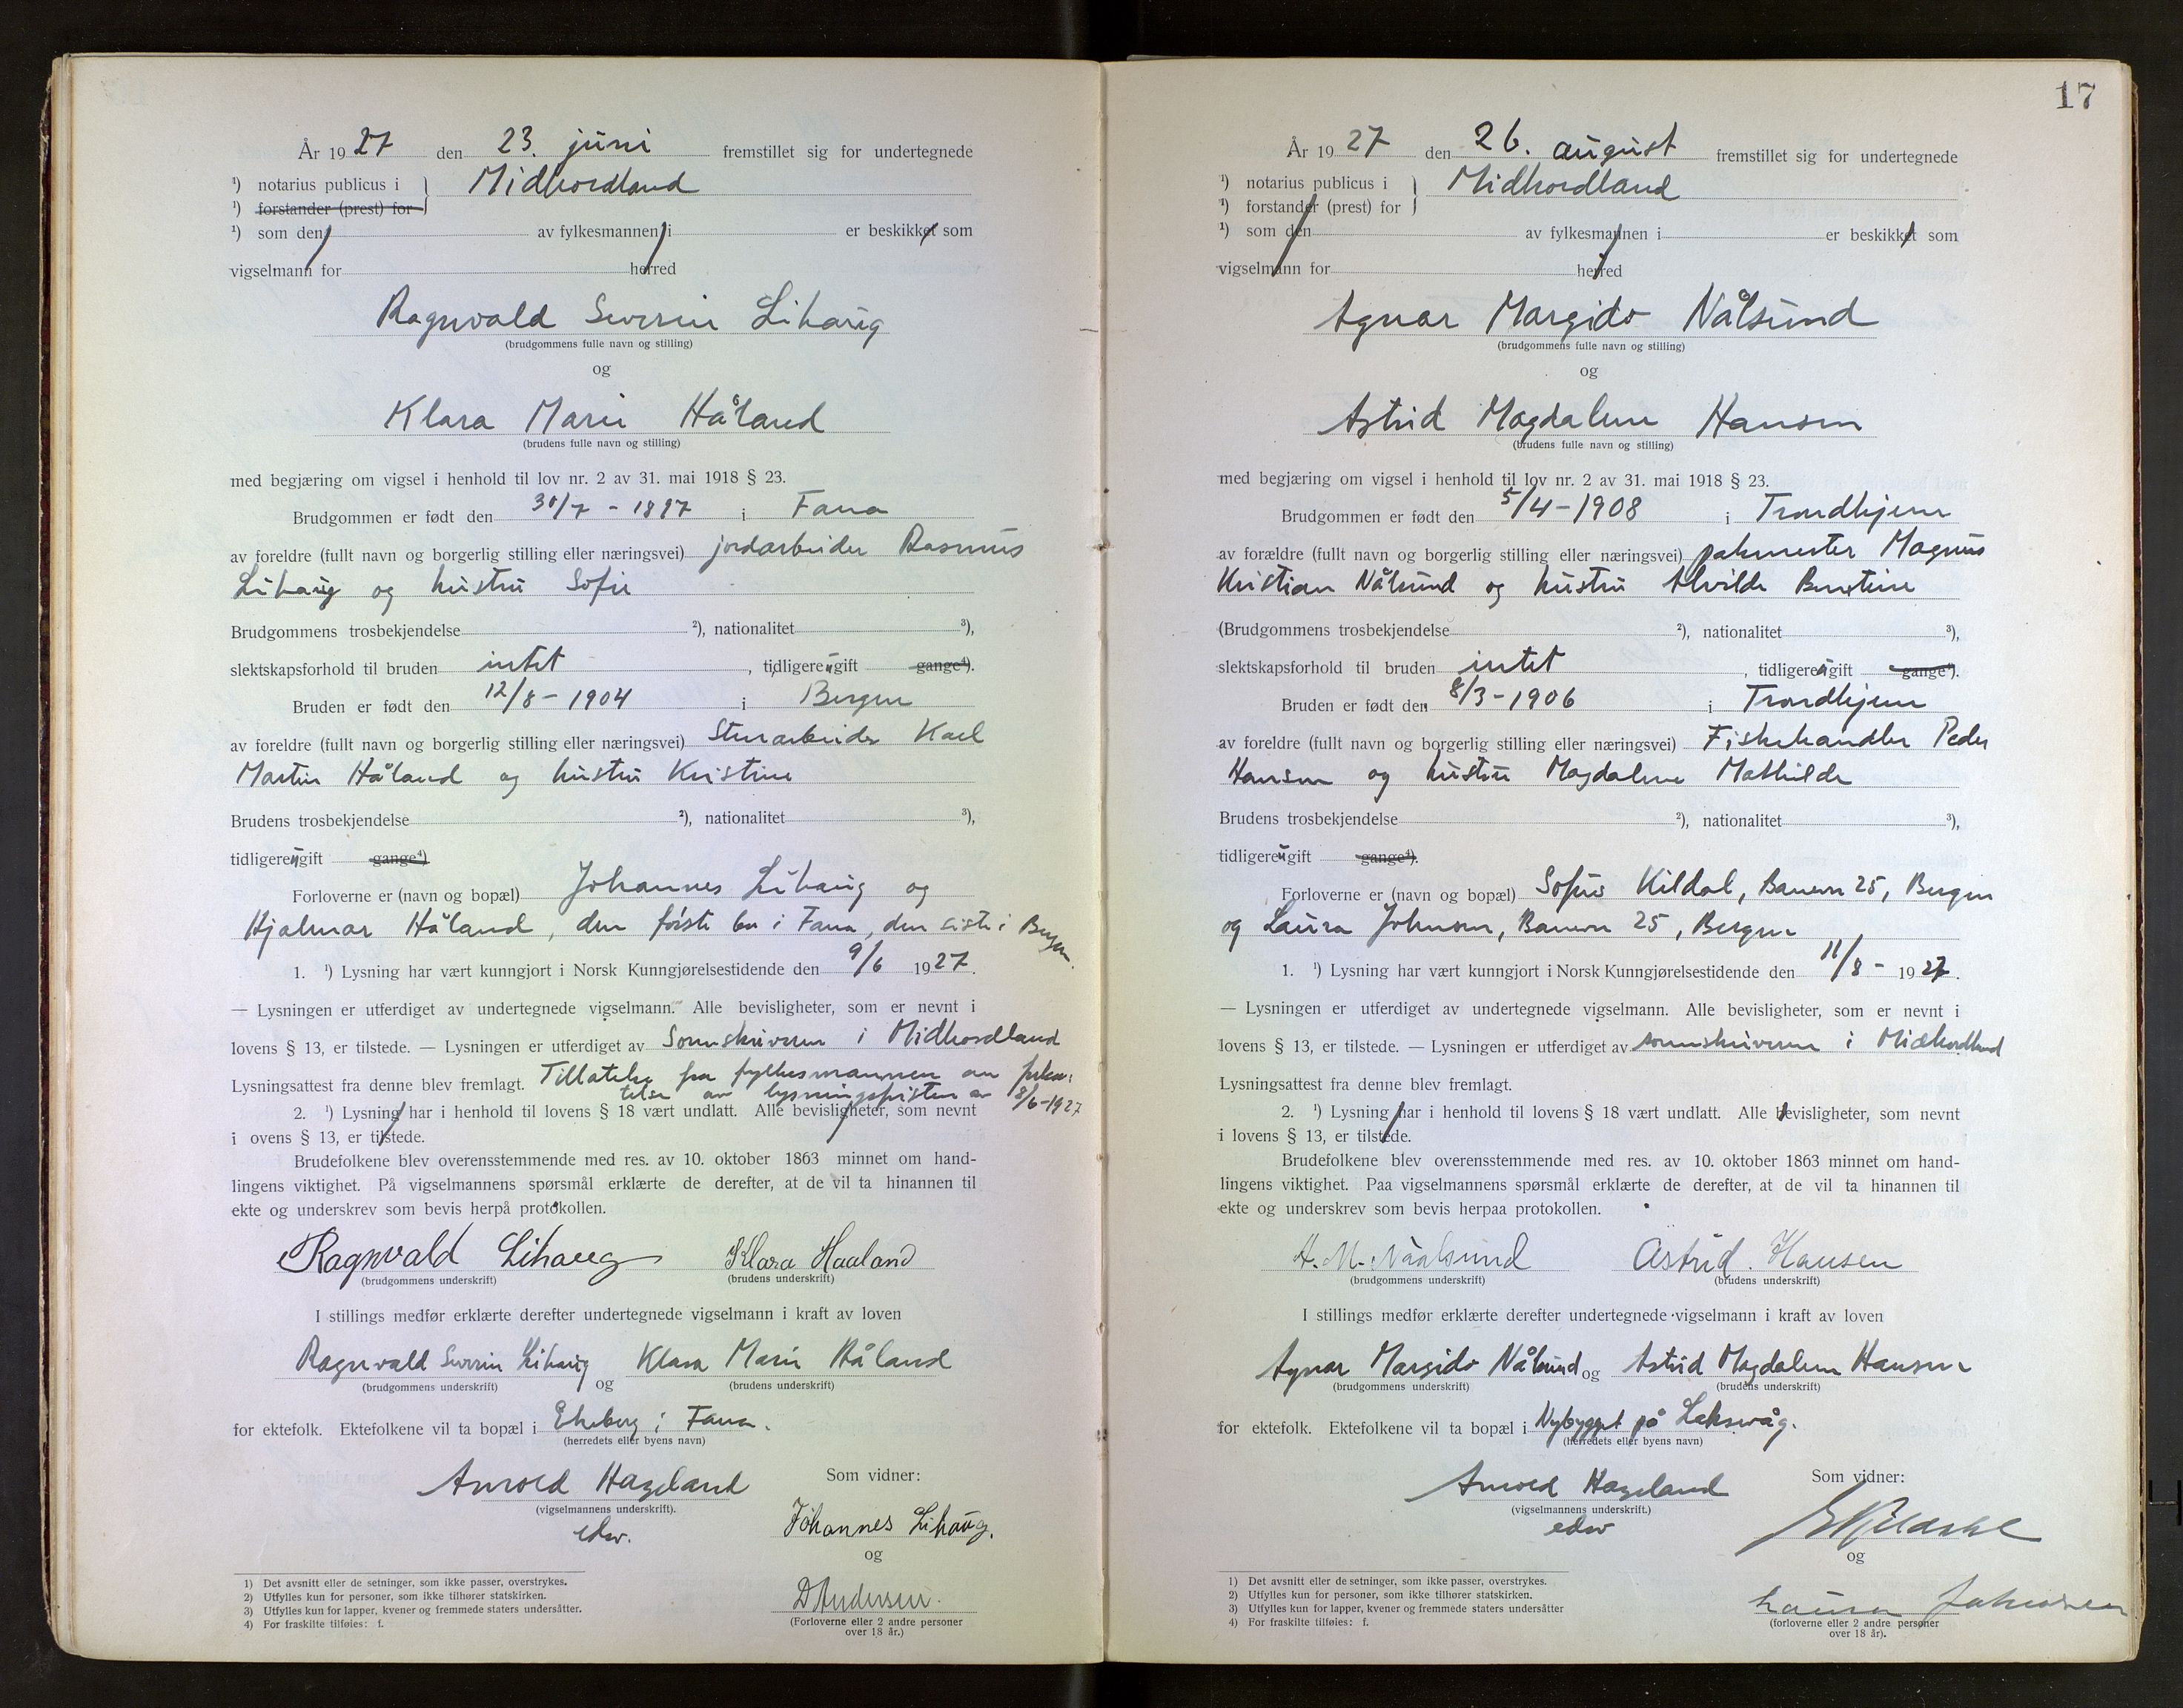 År 1927 den 23. juni fremstillet sig for undertegnede
¹) notarius publicus i } Midhordland
¹) forstander (prest) for
¹) som den av fylkesmannen i er beskikket som
vigselmann for herred
Ragnvald Severin Lihaug
(brudgommens fulle navn og stilling)
og
Klara Marie Håland
(brudens fulle navn og stilling)
med begjæring om vigsel i henhold til lov nr. 2 av 31. mai 1918 § 23.
Brudgommen er født den 30/7 - 1897 i Fana
av foreldre (fullt navn og borgerlig stilling eller næringsvei) jordarbeider Rasmus
Lihaug og hustru Sofie
Brudgommens trosbekjendelse ²), nationalitet ³),
slektskapsforhold til bruden intet , tidligere ugift gange⁴).
Bruden er født den 12/8 - 1904 i Bergen
av foreldre (fullt navn og borgerlig stilling eller næringsvei) Stuearbeider Karl
Martin Håland og hustru Kristine
Brudens trosbekjendelse ²), nationalitet ³),
tidligere ugift gange⁴)
Forloverne er (navn og bopæl) Johannes Lihaug og
Hjalmar Håland, den første bor i Fana, den siste i Bergen.
1. ¹) Lysning har vært kunngjort i Norsk Kunngjørelsestidende den 9/6 1927.
— Lysningen er utferdiget av undertegnede vigselmann. Alle bevisligheter, som er nevnt i
lovens § 13, er tilstede. — Lysningen er utferdiget av Sorenskriveren i Midhordland
Lysningsattest fra denne blev fremlagt. Tillatelse fra fylkesmannen om forkor-
telse av lysningsfristen av 8/6-1927
2. ¹) Lysning har i henhold til lovens § 18 vært undlatt. Alle bevisligheter, som nevnt
i ovens § 13, er tilstede.
Brudefolkene blev overensstemmende med res. av 10. oktober 1863 minnet om hand-
lingens viktighet. På vigselmannens spørsmål erklærte de derefter, at de vil ta hinannen til
ekte og underskrev som bevis herpå protokollen.
Ragnvald Lihaug Klara Haaland
(brudgommens underskrift) (brudens underskrift)
I stillings medfør erklærte derefter undertegnede vigselmann i kraft av loven
Ragnvald Severin Lihaug og Klara Marie Håland
(brudgommens underskrift) (brudens underskrift)
for ektefolk. Ektefolkene vil ta bopæl i Ekeberg i Fana.
(herredets eller byens navn)
Arnold Hazeland
(vigselmannens underskrift).
edsv.
Som vidner:
Johannes Lihaug.
og
D Andersen.
(Forloverne eller 2 andre personer
over 18 år.)
1) Det avsnitt eller de setninger, som ikke passer, overstrykes.
2) Utfylles kun for personer, som ikke tilhører statskirken.
3) Utfylles kun for lapper, kvener og fremmede staters undersåtter.
4) For fraskilte tilføies: f.
17
År 1927 den 26. august fremstillet sig for undertegnede
¹) notarius publicus i } Midhordland
¹) forstander (prest) for
¹) som den av fylkesmannen i er beskikket som
vigselmann for herred
Agnar Margido Nålsund
(brudgommens fulle navn og stilling)
og
Astrid Magdalene Hansen
(brudens fulle navn og stilling)
med begjæring om vigsel i henhold til lov nr. 2 av 31. mai 1918 § 23.
Brudgommen er født den 5/4 - 1908 i Trondhjem
av forældre (fullt navn og borgerlig stilling eller næringsvei) pakmester Magnus
Kristian Nålsund og hustru Alvilde Berntine
(Brudgommens trosbekjendelse ²), nationalitet ³),
slektskapsforhold til bruden intet , tidligere ugift gange⁴).
Bruden er født den 8/3 - 1906 i Trondhjem
av foreldre (fullt navn og borgerlig stilling eller næringsvei) Fiskehandler Peder
Hansen og hustru Magdalene Mathilde
Brudens trosbekjendelse ²), nationalitet ³),
tidligere ugift gange⁴).
Forloverne er (navn og bopæl) Sofus Kildal, 25, Bergen
og Laura Johnsen, 25, Bergen
1. ¹) Lysning har vært kunngjort i Norsk Kunngjørelsestidende den 11/8 - 1927.
— Lysningen er utferdiget av undertegnede vigselmann. Alle bevisligheter, som er nevnt i
lovens § 13, er tilstede. — Lysningen er utferdiget av sorenskriveren i Midhordland
Lysningsattest fra denne blev fremlagt.
2. ¹) Lysning har i henhold til lovens § 18 vært undlatt. Alle bevisligheter, som nevnt
i lovens § 13, er tilstede.
Brudefolkene blev overensstemmende med res. av 10. oktober 1863 minnet om hand-
lingens viktighet. Paa vigselmannens spørsmål erklærte de derefter, at de vil ta hinannen til
ekte og underskrev som bevis herpaa protokollen.
A. M. Naalsund Astrid. Hansen
(brudgommens underskrift) (brudens underskrift)
I stillings medfør erklærte derefter undertegnede vigselmann i kraft av loven
Agnar Margido Nålsund og Astrid Magdalene Hansen
(brudgommens underskrift) (brudens underskrift)
for ektefolk. Ektefolkene vil ta bopæl i Nybygget på Laksevåg.
(herredets eller byens navn)
Arnold Hazeland
(vigselmannens underskrift.)
edsv
Som vidner:
og
Laura Johnsen
(forloverne eller 2 andre personer
over 18 år).
1) Det avsnitt eller de setninger, som ikke passer, overstrykes.
2) Utfylles kun for personer, som ikke tilhører statskirken.
3) Utfylles kun for lapper, kvener og fremmede staters undersåtter
4) For fraskilte tilføies: f.